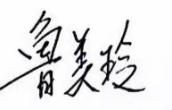 鲁美玲